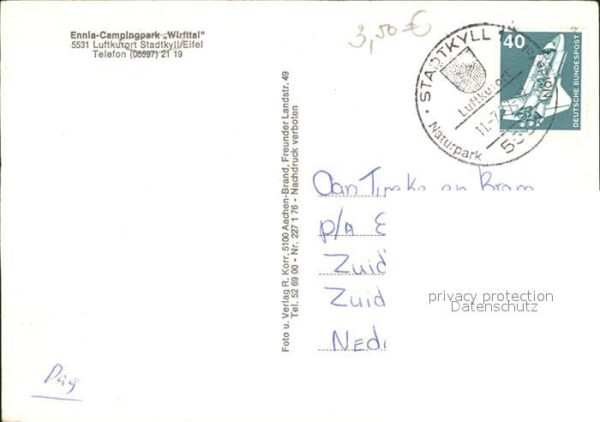 Ennia-Campingpark „Wirfttal"
5531 Luftkurort Stadtkyll/Eifel
Telefon (06597) 21 19
3,50 €
STADTKYLL
Luftkurort
Naturpark
40
DEUTSCHE BUNDESPOST
Foto u. Verlag R. Korr, 5100 Aachen-Brand, Freunder Landstr. 49
Tel. 52 69 00 - Nr. 227 1 76 - Nachdruck verboten
Aan Tineke en Bram
p/a E
Zuid
Zuid
Ned
privacy protection
Datenschutz